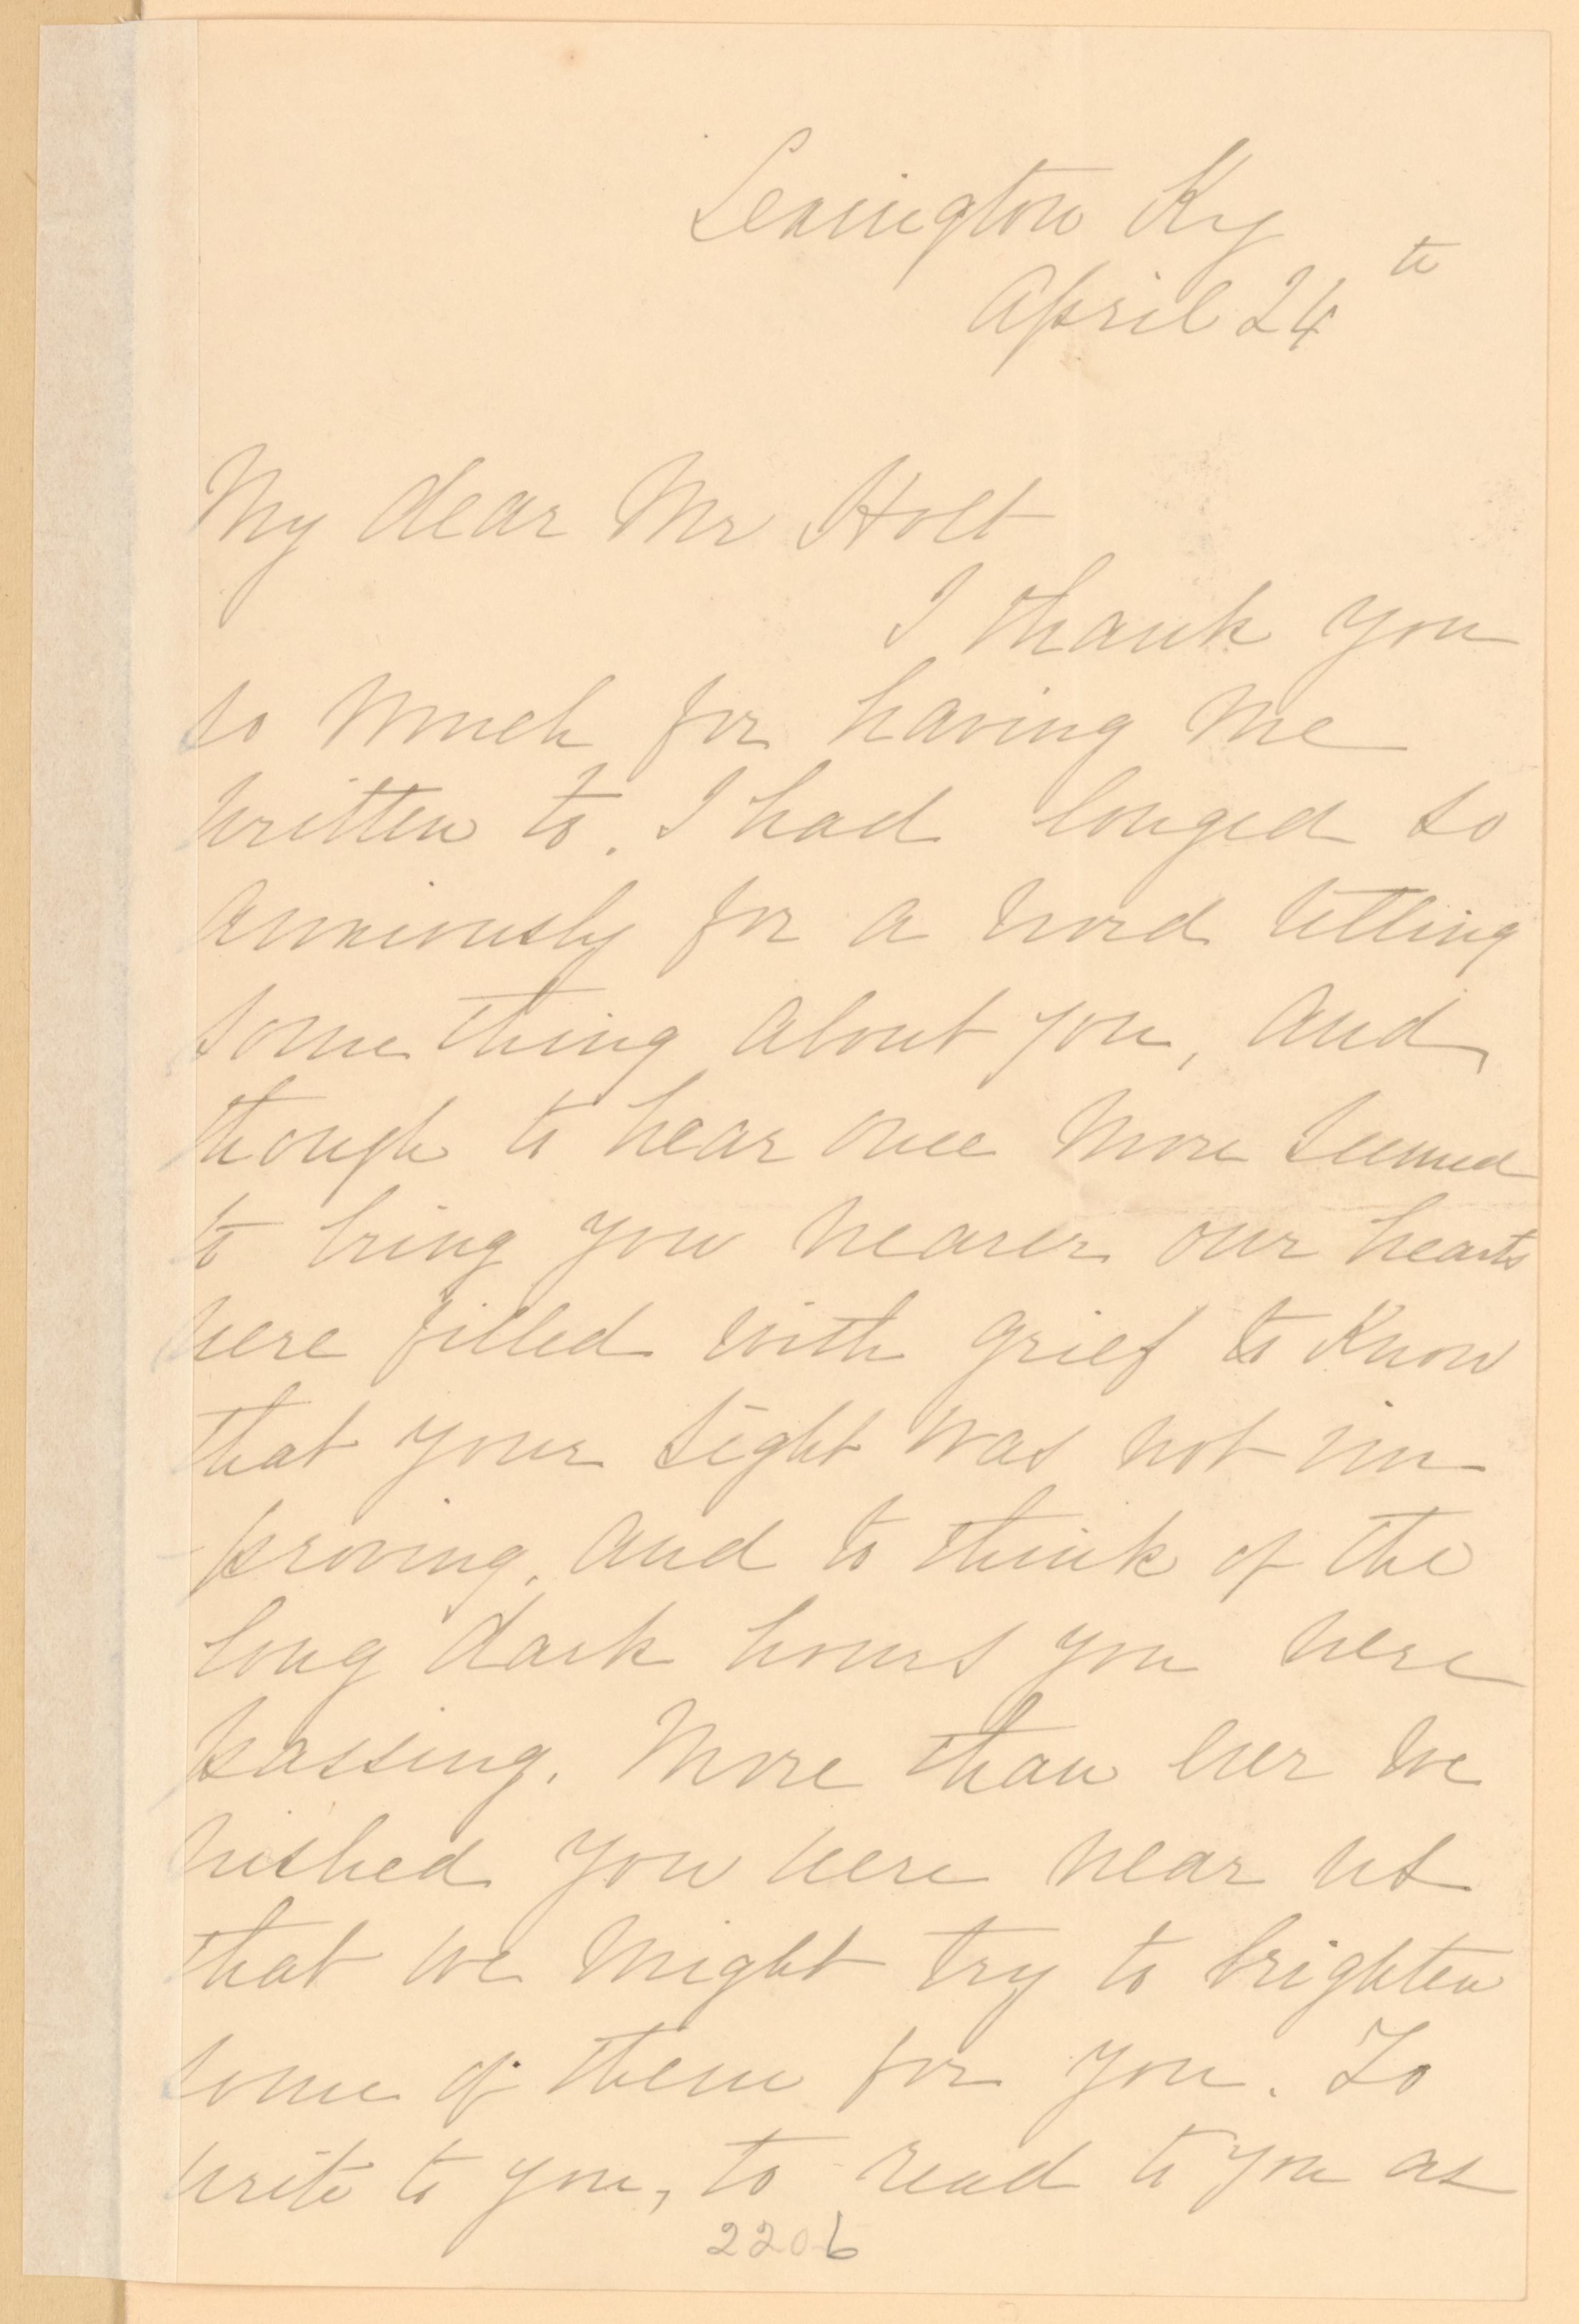 Lexington Ky
April 24th
My dear Mr Holt
I thank you
so much for having me
written to. I had longed so
anxiously for a word telling
some thing about you, and
though to hear once more seemed
to bring you nearer our hearts
were filled with grief to know
that your sight was not im
proving, and to think of the
long dark hours you were
passing. More than ever we
wished you were near us
that we might try to brighten
some of them for you. To
write to you, to read to you as
2206